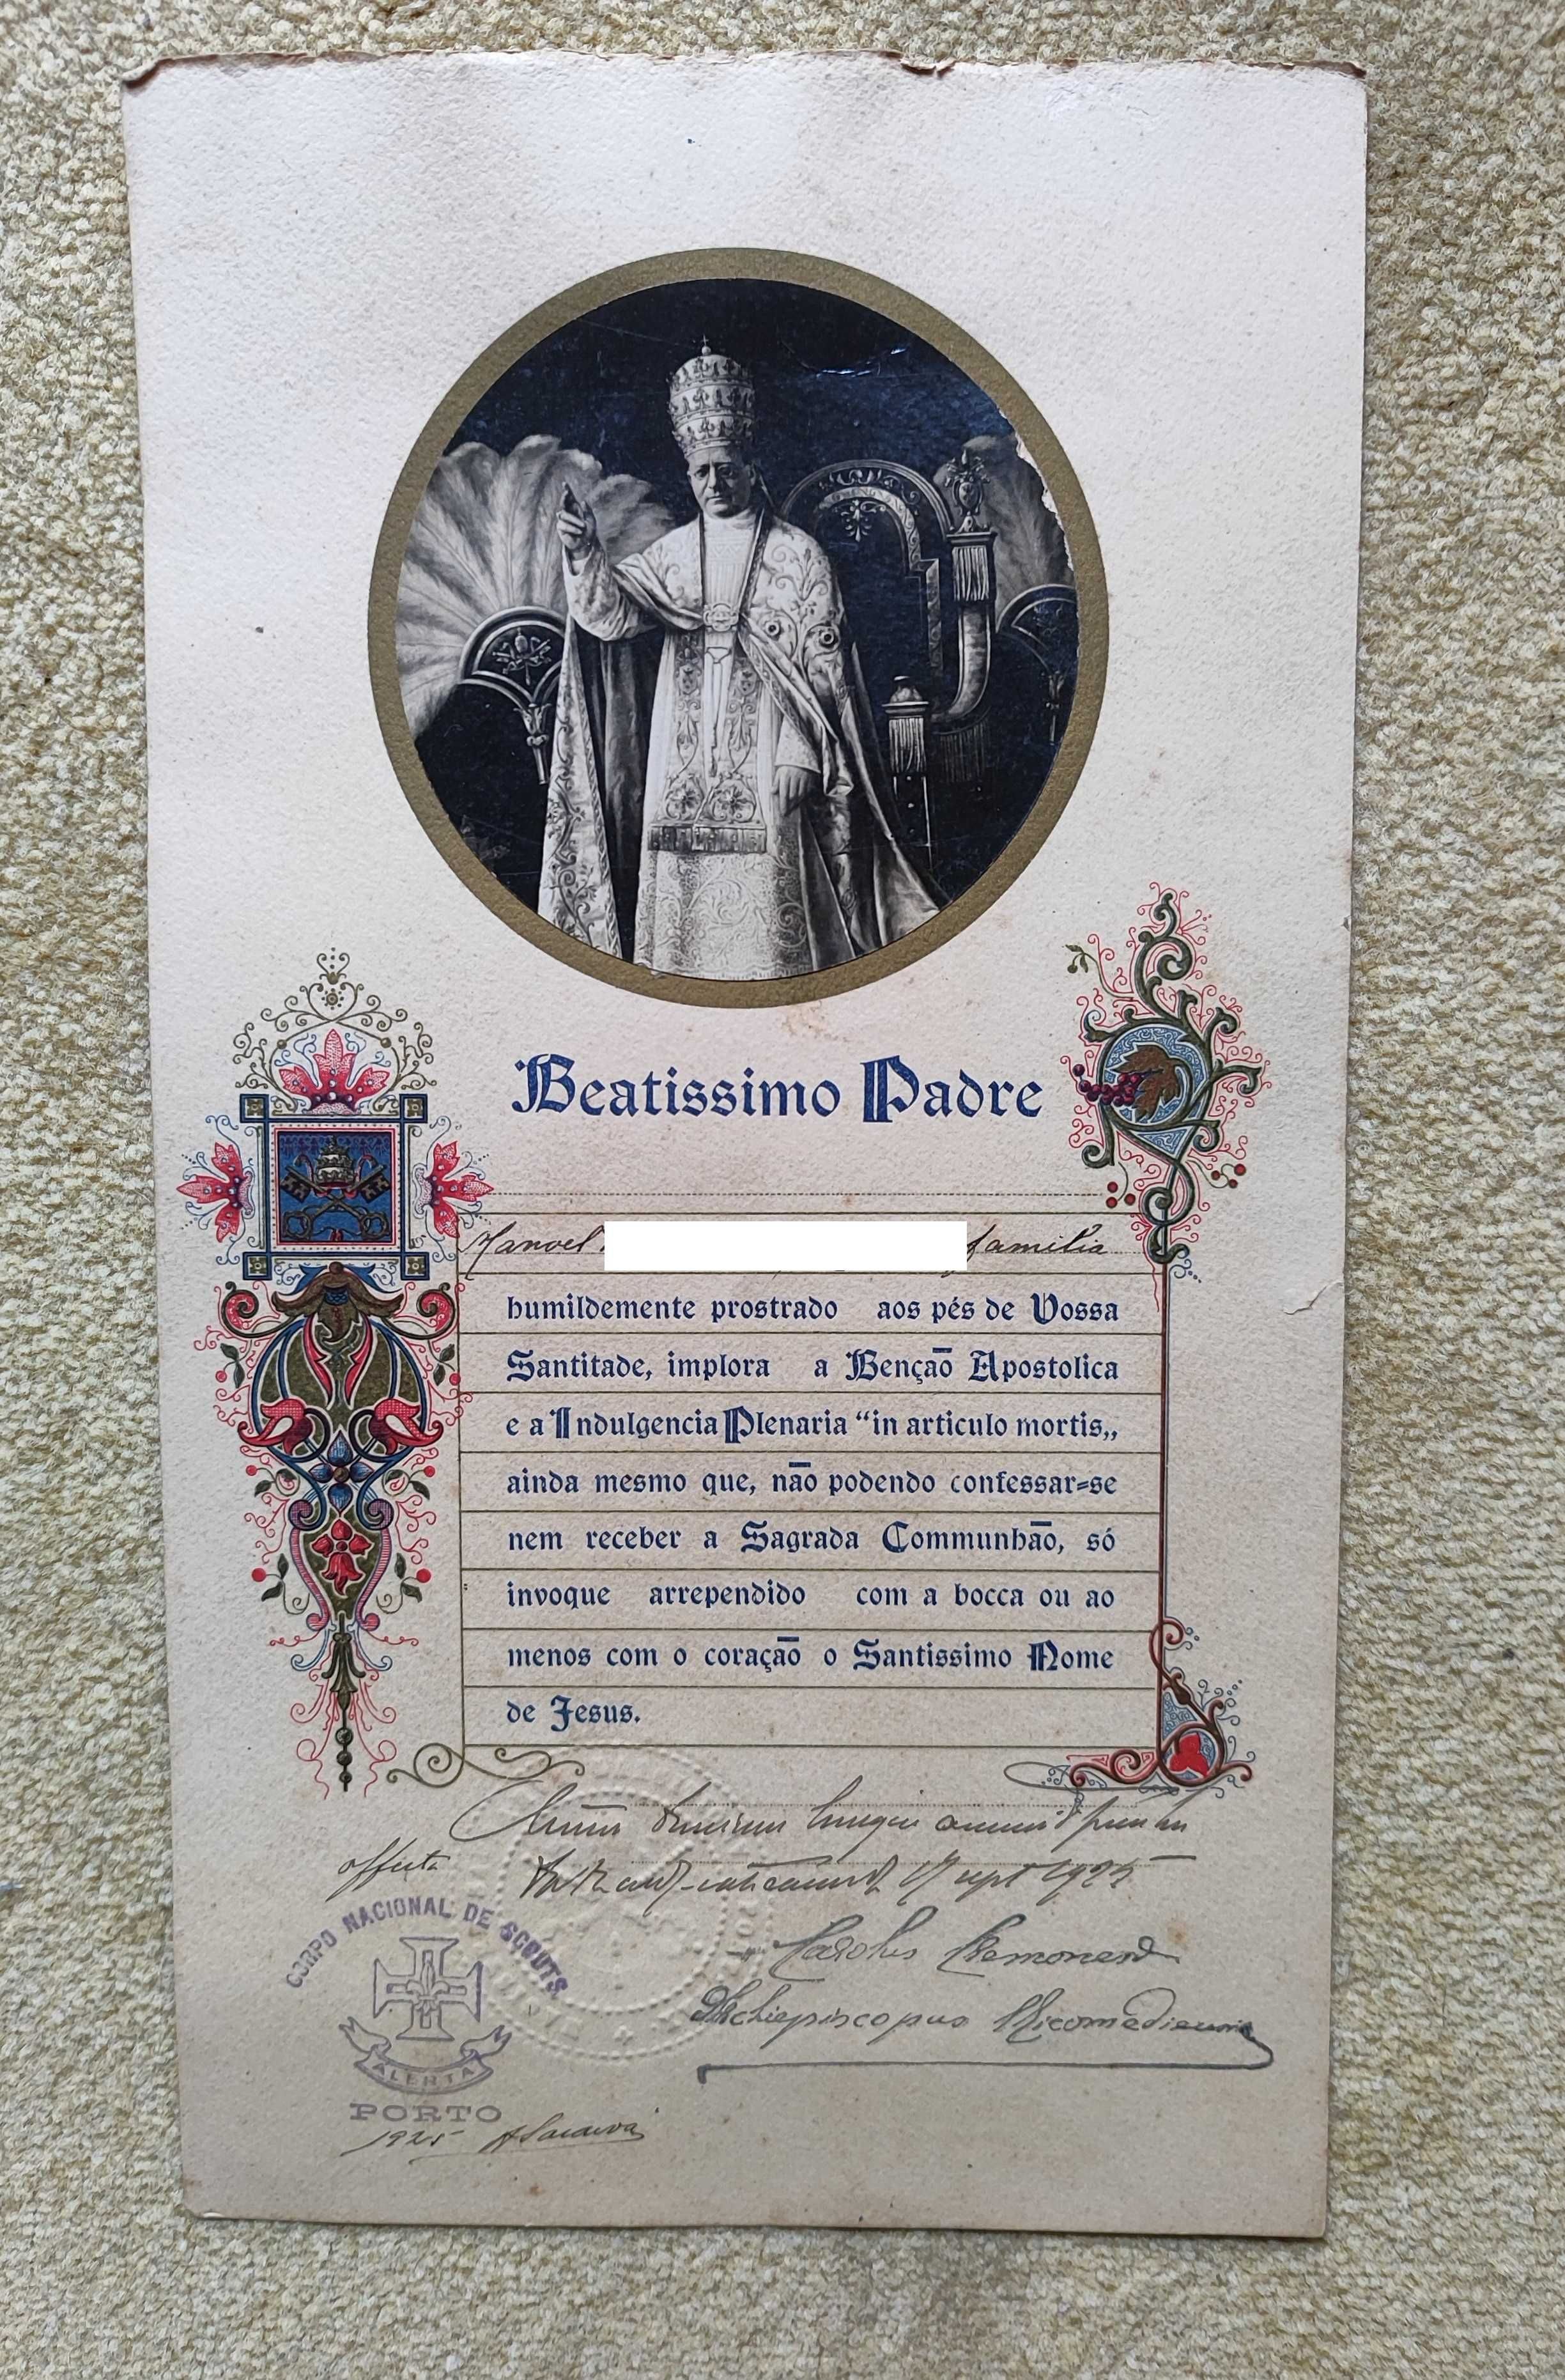 Beatissimo Padre
Manoel familia
humildemente prostrado aos pés de Vossa
Santitade, implora a Benção Apostolica
e a Indulgencia Plenaria “in articulo mortis„
ainda mesmo que, não podendo confessar=se
nem receber a Sagrada Communhão, só
invoque arrependido com a bocca ou ao
menos com o coração o Santissimo Nome
de Jesus.
offerta
17 sept 1925
Carolus Cremonesi
Archiepiscopus Nicomediensis
CORPO NACIONAL DE SCOUTS
ALERTA
PORTO
1925